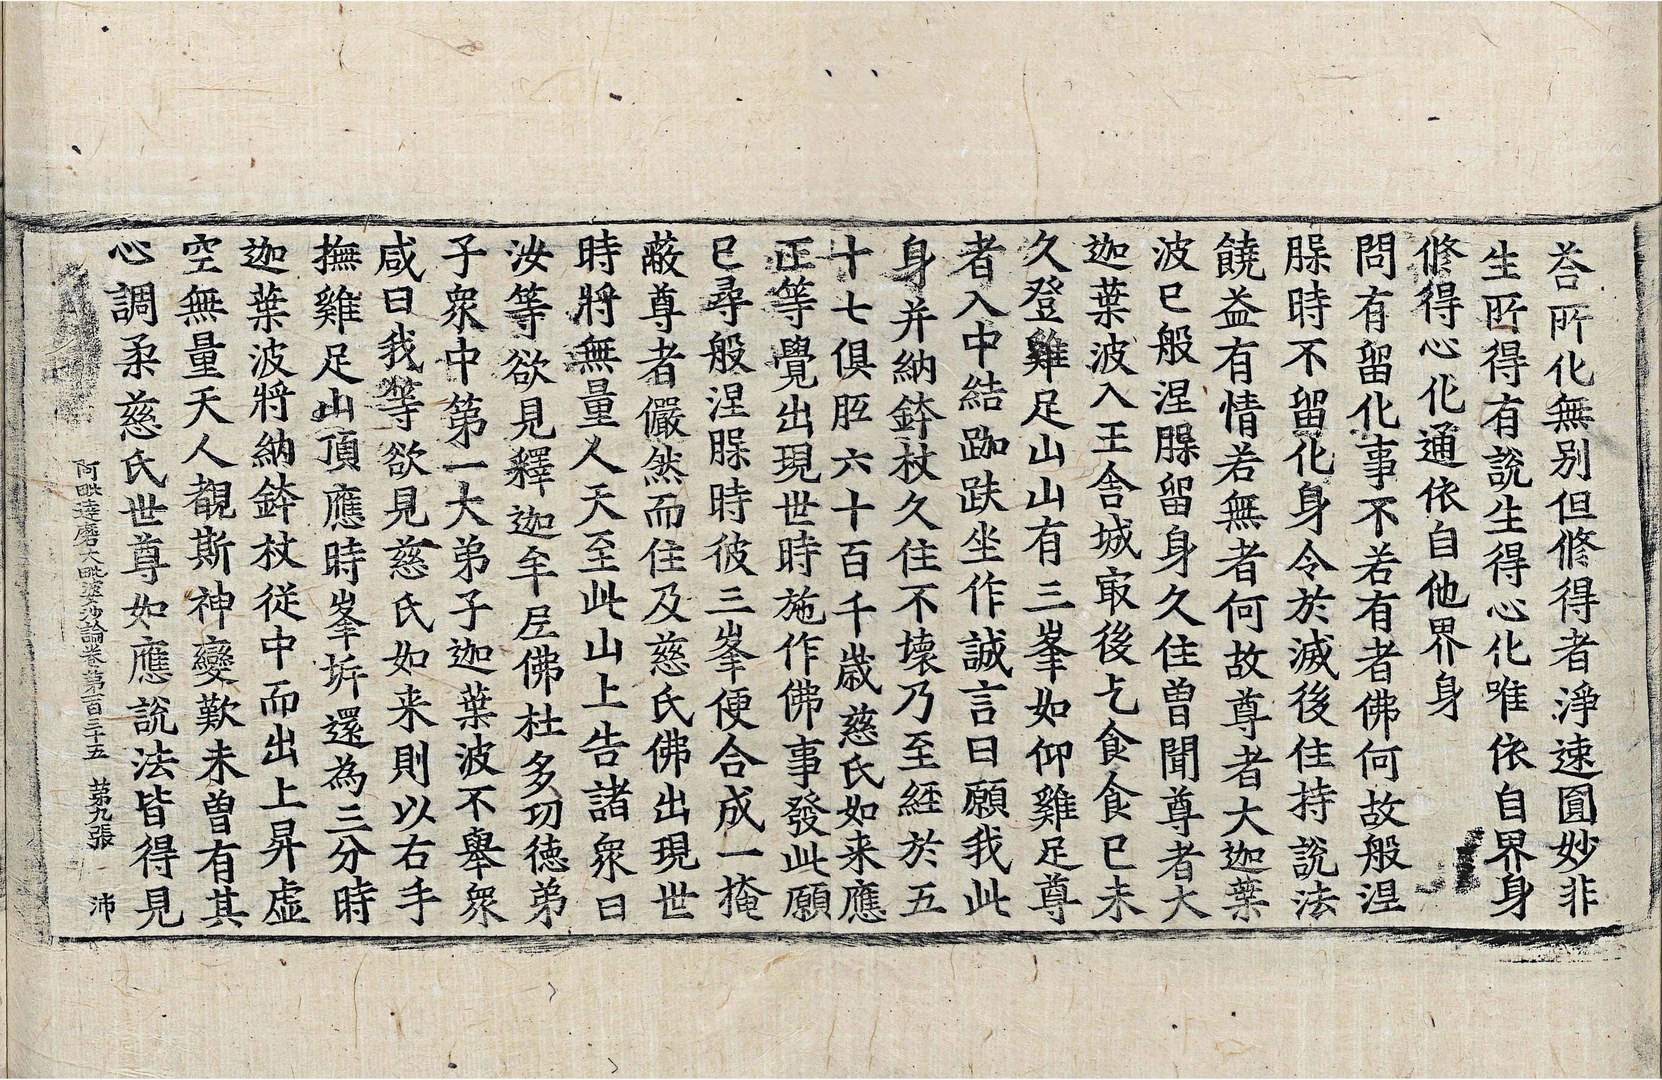 荅所化無別但修得者淨速圓妙非
生所得有說生得心化唯依自界身
修得心化通依自他界身
問有留化事不若有者佛何故般涅
腂時不留化身令於滅後住持說法
饒益有情若無者何故尊者大迦葉
波已般涅腂留身久住曾聞尊者大
迦葉波入王舍城㝡後乞食食已未
久登雞足山山有三峯如仰雞足尊
者入中結跏趺坐作誠言曰願我此
身并納鉢杖久住不壞乃至經於五
十七俱胝六十百千歲慈氏如来應
正等覺出現世時施作佛事發此願
已尋般涅腂時彼三峯便合成一掩
蔽尊者儼然而住及慈氏佛出現世
時將無量人天至此山上告諸衆曰
汝等欲見釋迦牟尼佛杜多功德弟
子衆中第一大弟子迦葉波不舉衆
咸曰我等欲見慈氏如来則以右手
撫雞足山頂應時峯坼還為三分時
迦葉波將納鉢杖從中而出上昇虛
空無量天人覩斯神變歎未曾有其
心調柔慈氏世尊如應說法皆得見
阿毗達磨大毗婆沙論卷第一百三十五　第九張　沛